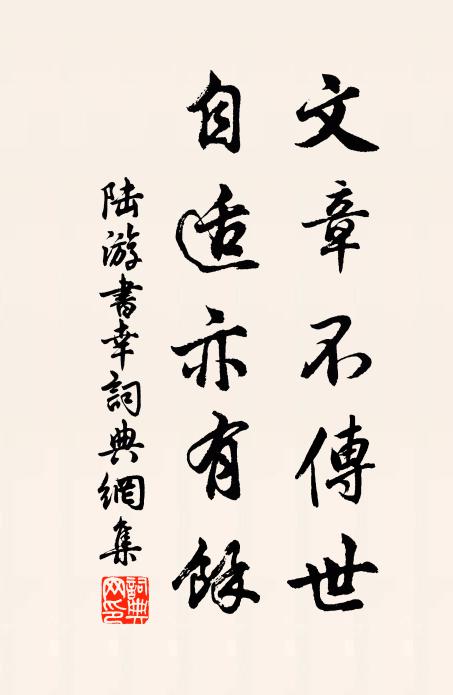 文章不傳世
自适亦有餘
陆游書幸詞典網集
詞典网印